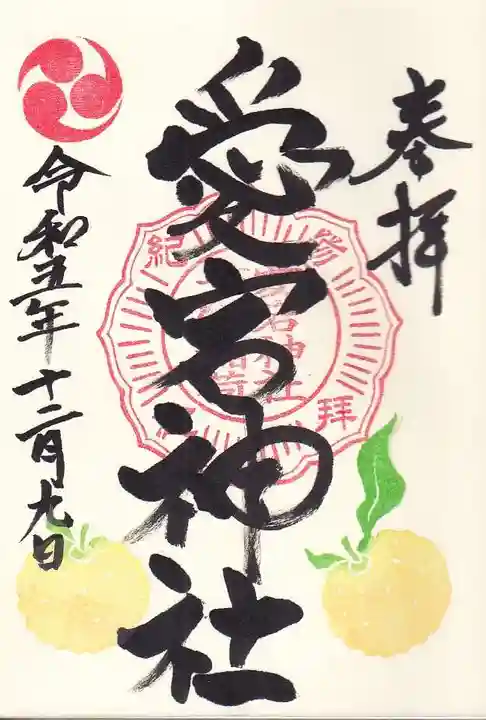 奉拝
愛宕神社
令和五年十二月九日
参拝紀念